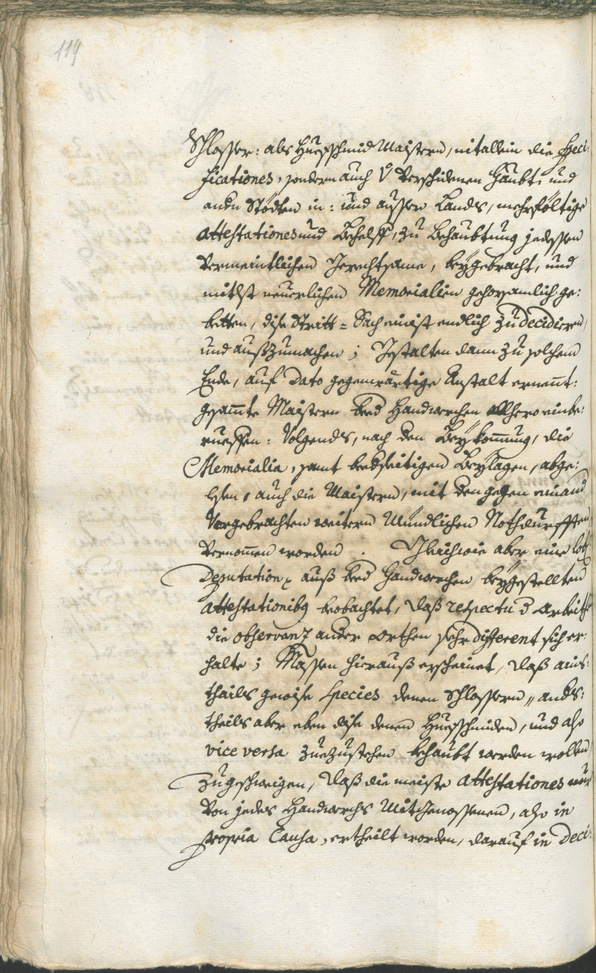 119
Schlosser: als Huefschmid Maistern, nit allein die Speci-
ficationes, sondern auch v. verschidenen Haubt: und
andn Stödten in: und ausser Lands, mehrföltige
Attestationes und Behelff, zu Behaubtung jedessen
vermeintlichen Gerechtsame, beygebracht, und
mitlst neuerlichen Memorialien gehorsamlich ge:
betten, dise Stritt= Sach einist endlich zu decidiren,
und ausszumachen; Gestalten dann zu solchem
Ende, auf dato gegenwärtige Anstalt ernennt:
gesamte Maistern bed Handwerchen allhero einbe:
rueffen: Volgends, nach den Beykommung, die
Memorialia, samt bedseitigen Beylagen, abge:
lesen, auch die Maistern, mit den gegen einand
vorgebrachten weitern Mündlichen Nothdurfften
vernommen worden. Gleichwie aber eine löbl:
Deputation, auss bed Handwerchen beygestellten
Attestationibus beobachtet, dass respectu d Arbeith
die observanz ander Orthen sehr different sich er:
halte; Massen hierauss erscheinet, dass ains:
theils gewise Species denen Schlossern,, ands:
theils aber eben dise denen Huefschmiden, und also
vice versa zuezustehen behaubt werden wollen
zugeschweigen, dass die meiste Attestationes nur
von jedes Handwerchs Mitgenossenen, also in
propria Causa, ertheilt worden, darauf in deci-